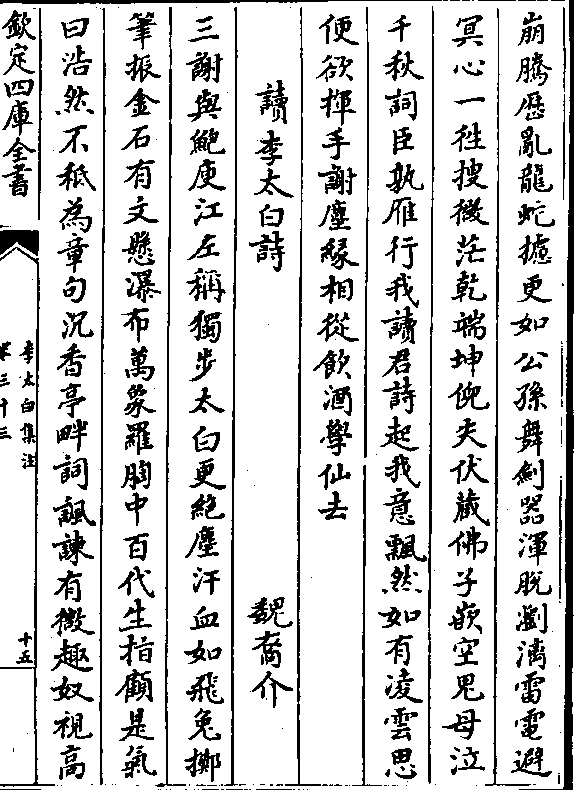 崩騰歴亂龍蛇攎更如公孫舞劍器渾脫瀏漓雷電避
冥心一徃搜微茫乾端坤倪失伏藏佛子嵌空鬼母泣
千秋詞臣孰雁行我讀君詩起我意飄然如有凌雲思
便欲揮手謝塵緣相從飲酒學仙去
讀李太白詩
魏裔介
三謝與鮑庾江左稱獨步太白更絶塵汗血如飛兔擲
筆振金石有文懸瀑布萬象羅胸中百代生指顧是氣
曰浩然不秪為章句沉香亭畔詞諷諫有微趣奴視高
欽定四庫全書
李太白集注
卷三十三
十五